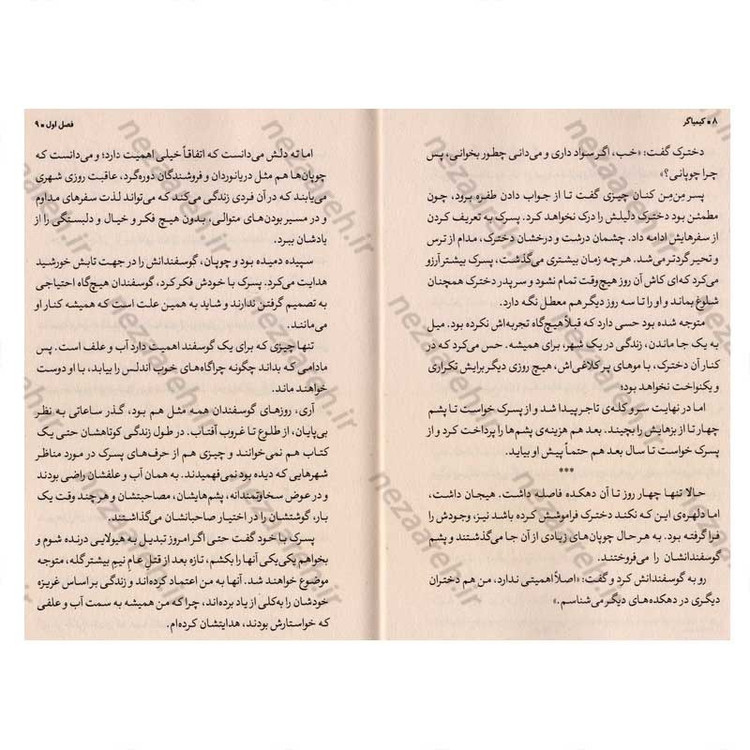 ۸ • کیمیاگر
دخترک گفت: «خب، اگر سواد داری و می‌دانی چطور بخوانی، پس
چرا چوپانی؟»
پسر مِن‌مِن کنان چیزی گفت تا از جواب دادن طفره برود، چون
مطمئن بود دخترک دلیلش را درک نخواهد کرد. پسرک به تعریف کردن
از سفرهایش ادامه داد. چشمان درشت و درخشان دخترک، مدام از ترس
و تحیر گردتر می‌شد. هر چه زمان بیشتری می‌گذشت، پسرک بیشتر آرزو
می‌کرد که ای کاش آن روز هیچ‌وقت تمام نشود و سر پدر دخترک همچنان
شلوغ بماند و او را تا سه روز دیگر هم معطل نگه دارد.
متوجه شده بود حسی دارد که قبلاً هیچ‌گاه تجربه‌اش نکرده بود. میل
به یک جا ماندن، زندگی در یک شهر، برای همیشه. حس می‌کرد که در
کنار آن دخترک، با موهای پر کلاغی‌اش، هیچ روزی دیگر برایش تکراری
و یکنواخت نخواهد بود؛
اما در نهایت سر و کله‌ی تاجر پیدا شد و از پسرک خواست تا پشم
چهار تا از بزهایش را بچیند. بعد هم هزینه‌ی پشم‌ها را پرداخت کرد و از
پسرک خواست تا سال بعد هم حتماً پیش او بیاید.
***
حالا تنها چهار روز تا آن دهکده فاصله داشت. هیجان داشت،
اما دلهره‌ی این که نکند دخترک فراموشش کرده باشد نیز، وجودش را
فرا گرفته بود. به هر حال چوپان‌های زیادی از آن جا می‌گذشتند و پشم
گوسفندانشان را می‌فروختند.
رو به گوسفندانش کرد و گفت: «اصلاً اهمیتی ندارد، من هم دختران
دیگری در دهکده‌های دیگر می‌شناسم.»
فصل اول • ۹
اما ته دلش می‌دانست که اتفاقاً خیلی اهمیت دارد؛ و می‌دانست که
چوپان‌ها هم مثل دریانوردان و فروشندگان دوره‌گرد، عاقبت روزی شهری
می‌یابند که در آن فردی زندگی می‌کند که می‌تواند لذت سفرهای مداوم
و در مسیر بودن‌های متوالی، بدون هیچ فکر و خیال و دلبستگی را از
یادشان ببرد.
سپیده دمیده بود و چوپان، گوسفندانش را در جهت تابش خورشید
هدایت می‌کرد. پسرک با خودش فکر کرد، گوسفندان هیچ‌گاه احتیاجی
به تصمیم گرفتن ندارند و شاید به همین علت است که همیشه کنار او
می‌مانند.
تنها چیزی که برای یک گوسفند اهمیت دارد آب و علف است. پس
مادامی که بداند چگونه چراگاه‌های خوب اندلس را بیابد، با او دوست
خواهند ماند.
آری، روزهای گوسفندان همه مثل هم بود، گذر ساعاتی به نظر
بی‌پایان، از طلوع تا غروب آفتاب. در طول زندگی کوتاهشان حتی یک
کتاب هم نمی‌خوانند و چیزی هم از حرف‌های پسرک در مورد مناظر
شهرهایی که دیده بود نمی‌فهمیدند. به همان آب و علفشان راضی بودند
و در عوض سخاوتمندانه، پشم‌هایشان، مصاحبتشان و هر چند وقت یک
بار، گوشتشان را در اختیار صاحبانشان می‌گذاشتند.
پسرک با خود گفت حتی اگر امروز تبدیل به هیولایی درنده شوم و
بخواهم یکی‌یکی آنها را بکشم، تازه بعد از قتل عام نیم بیشتر گله، متوجه
موضوع خواهند شد. آنها به من اعتماد کرده‌اند و زندگی بر اساس غریزه
خودشان را به‌کلی از یاد برده‌اند، چرا که من همیشه به سمت آب و علفی
که خواستارش بودند، هدایتشان کرده‌ام.
nezaareh.ir